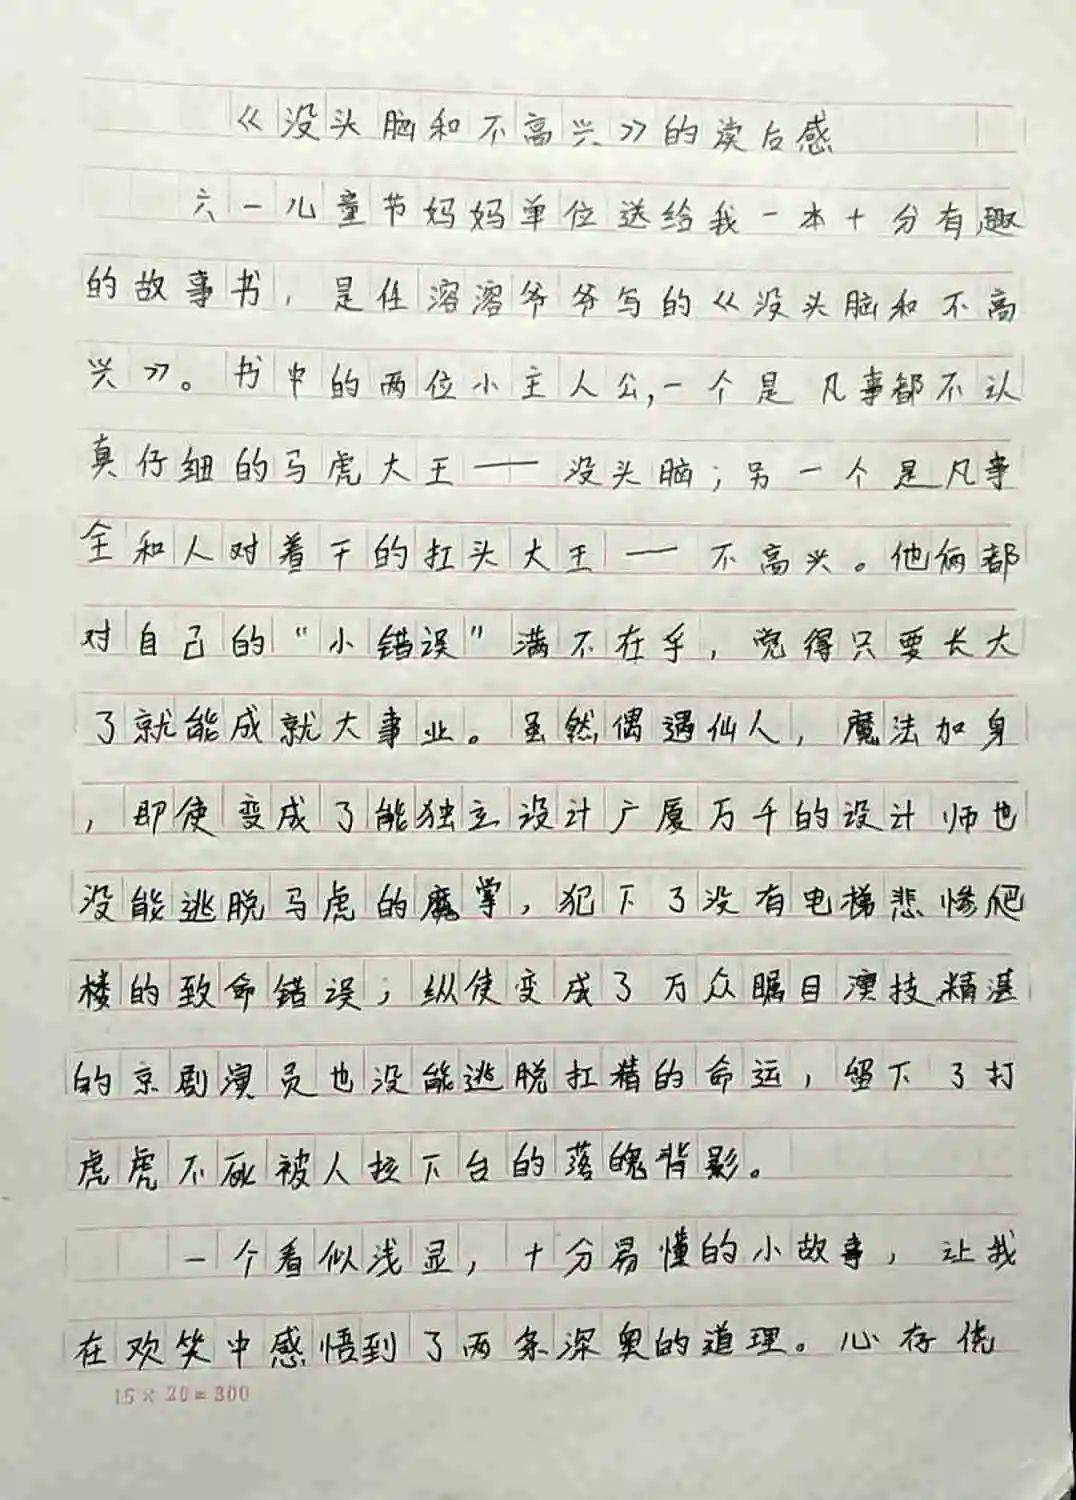 《没头脑和不高兴》的读后感
六一儿童节妈妈单位送给我一本十分有趣
的故事书，是任溶溶爷爷写的《没头脑和不高
兴》。书中的两位小主人公，一个是凡事都不认
真仔细的马虎大王——没头脑；另一个是凡事
全和人对着干的扛头大王——不高兴。他俩都
对自己的“小错误”满不在乎，觉得只要长大
了就能成就大事业。虽然偶遇仙人，魔法加身
，即使变成了能独立设计广厦万千的设计师也
没能逃脱马虎的魔掌，犯下了没有电梯悲惨爬
楼的致命错误；纵使变成了万众瞩目演技精湛
的京剧演员也没能逃脱扛精的命运，留下了打
虎虎不死被人拉下台的落魄背影。
一个看似浅显，十分易懂的小故事，让我
在欢笑中感悟到了两条深奥的道理。心存侥
15×20=300